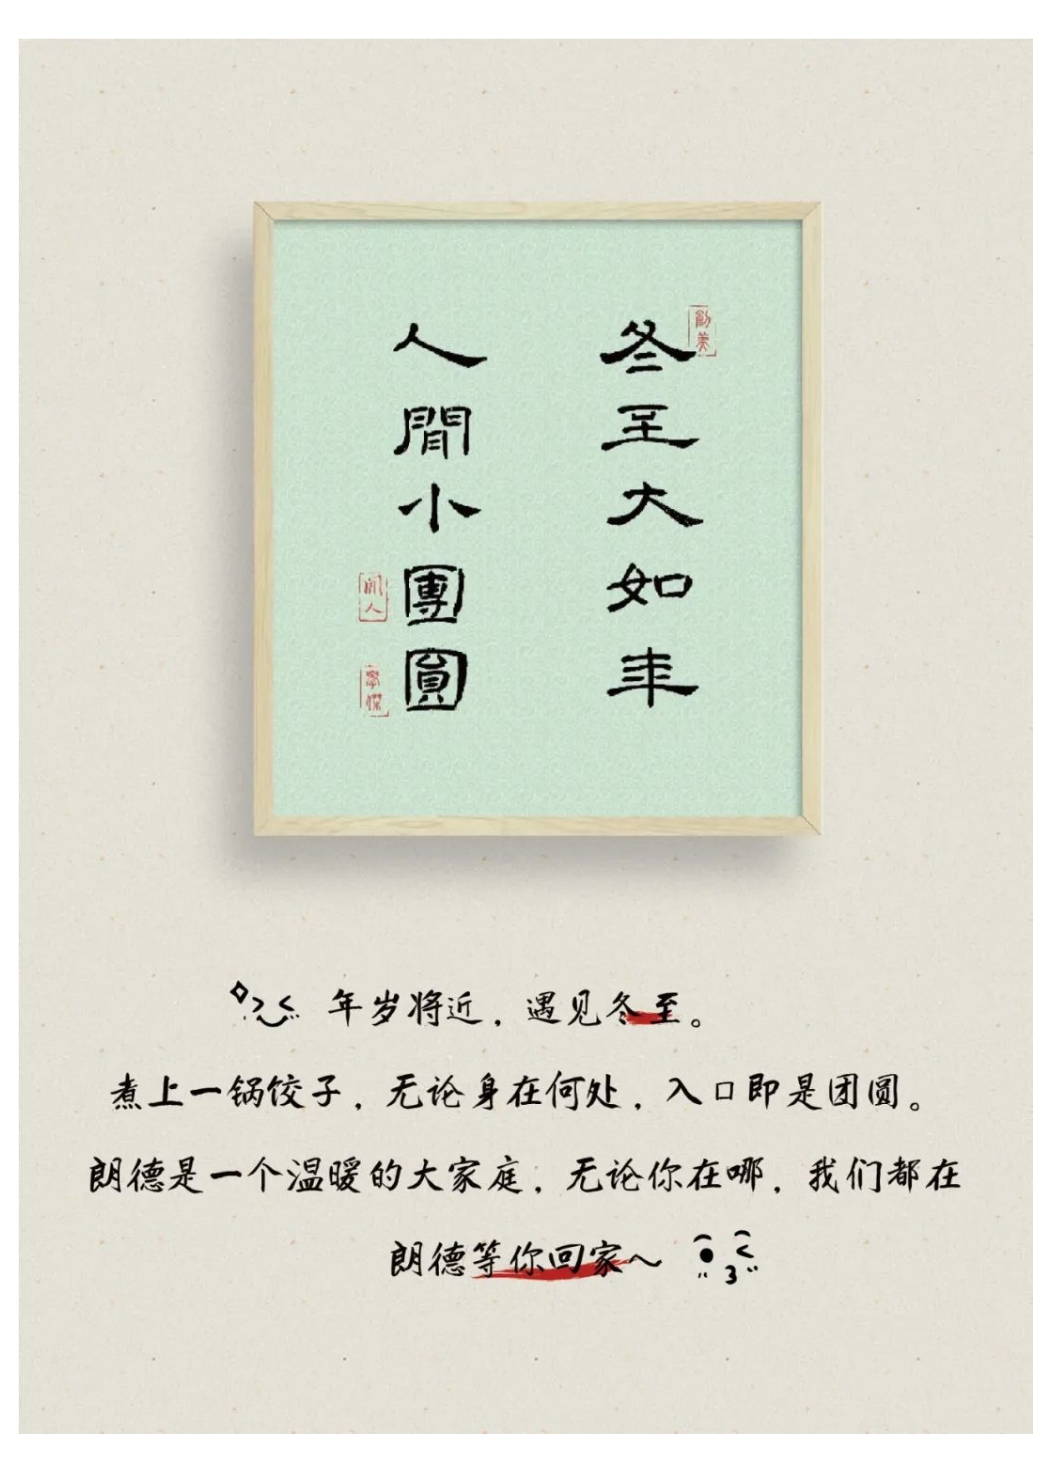 冬至大如年
人間小團圓
年岁将近，遇见冬至。
煮上一锅饺子，无论身在何处，入口即是团圆。
朗德是一个温暖的大家庭，无论你在哪，我们都在
朗德等你回家～